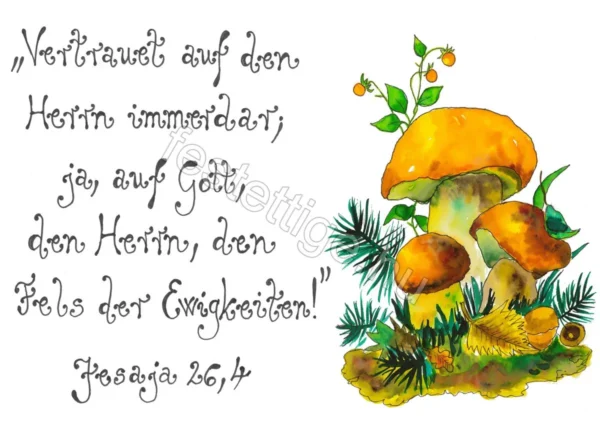 „Vertrauet auf den
Herrn immerdar;
ja, auf Gott,
den Herrn, den
Fels der Ewigkeiten!”
Jesaja 26,4